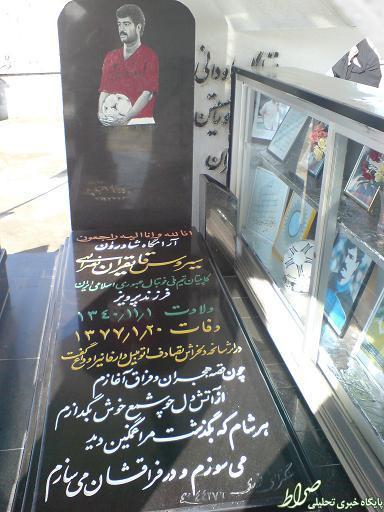 انا لله و انا الیه راجعون
آرامگاه شادروان
سیروس قایقران
کاپیتان تیم ملی فوتبال جمهوری اسلامی ایران
فرزند پرویز
ولادت ۱۳۴۰،۱۱،۱
وفات ۱۳۷۷،۱،۲۰
در اثر سانحه دلخراش تصادف اتومبیل دار فانی را وداع گفت
چون قصه هجران و فراق آغازم
از آتش دل چو شمع خوش بگدازم
هر شام که بگذشت مرا غمگین دید
می سوزم و در فراقشان می سازم
صراط
پایگاه خبری تحلیلی